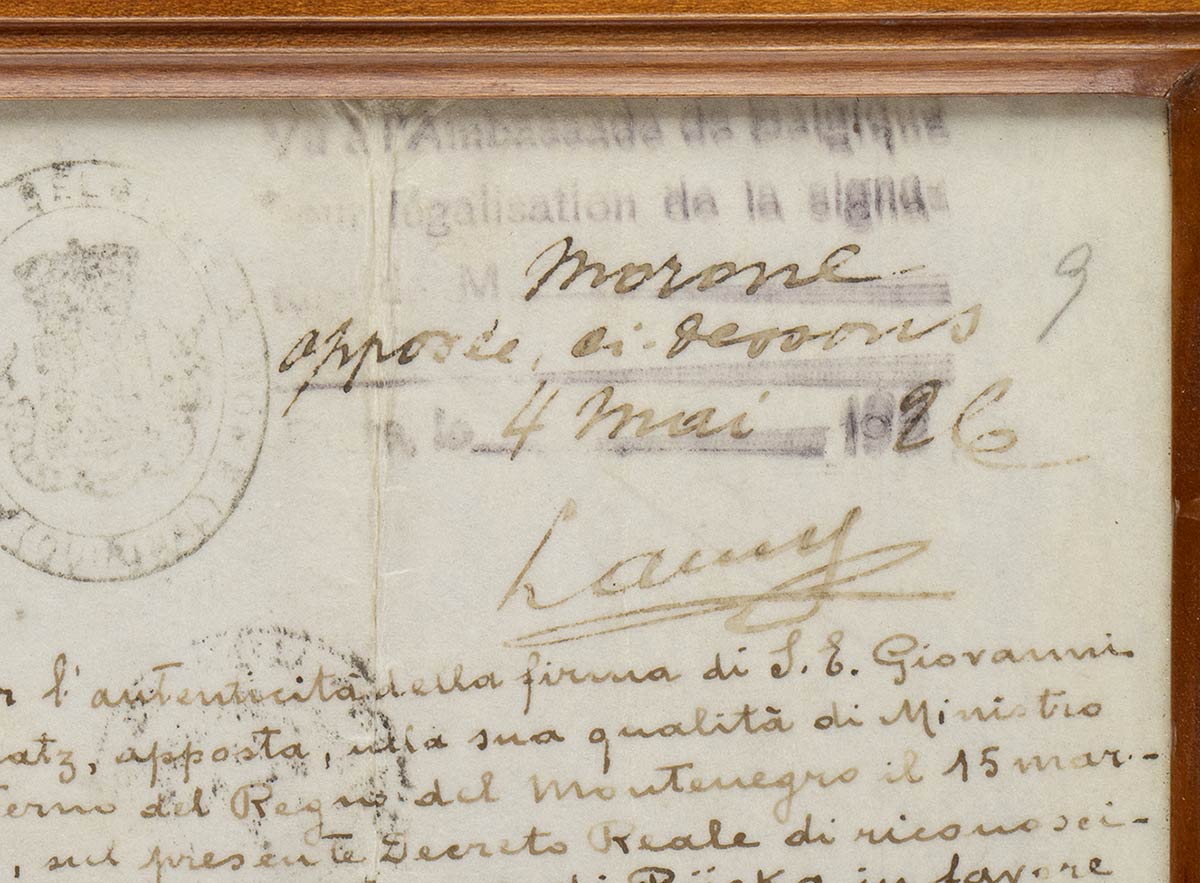 Vu à l'Ambassade de Belgique
légalisation de la signa
M Morone
9
apposée, ci-dessous
le 4 Mai 1926
Lamy
BELG
r l'autenticità della firma di S. E. Giovanni
atz, apposta, nella sua qualità di Ministro
terno del Regno del Montenegro il 15 mar-
, sul presente Decreto Reale di riconosci-
di Rijeka in favore